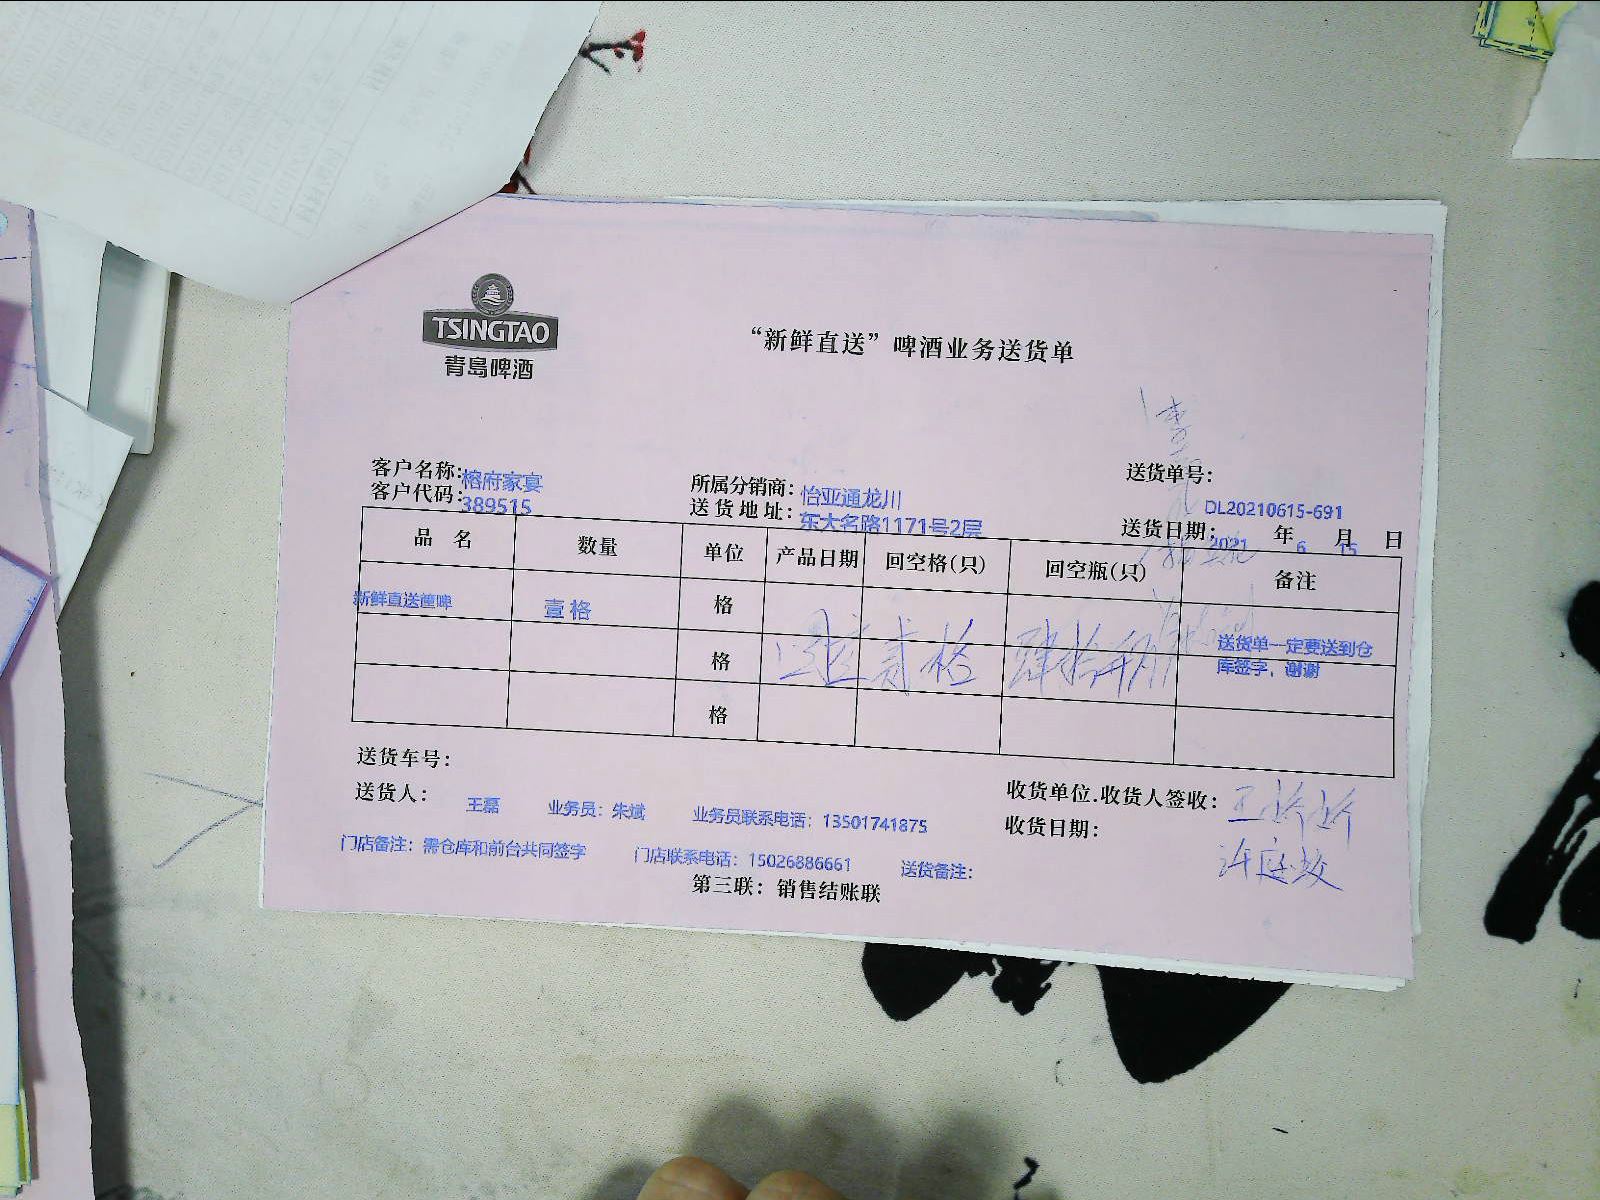 TSINGTAO
青岛啤酒
“新鲜直送”啤酒业务送货单
客户名称：榕府家宴
客户代码：389515
所属分销商：怡亚通龙川
送货地址：东大名路1171号2层
送货单号：
DL20210615-691
送货日期：2021年6月15日
品名 数量 单位 产品日期 回空格(只) 回空瓶(只) 备注
新鲜直送箽啤 壹格 格
格 退 贰格 肆拾 瓶 送货单一定要送到仓
库签字，谢谢
格
送货车号：
送货人： 王磊 业务员：朱斌 业务员联系电话：13501741875
收货单位.收货人签收：
收货日期：
门店备注：需仓库和前台共同签字 门店联系电话：15026886661 送货备注：
第三联：销售结账联